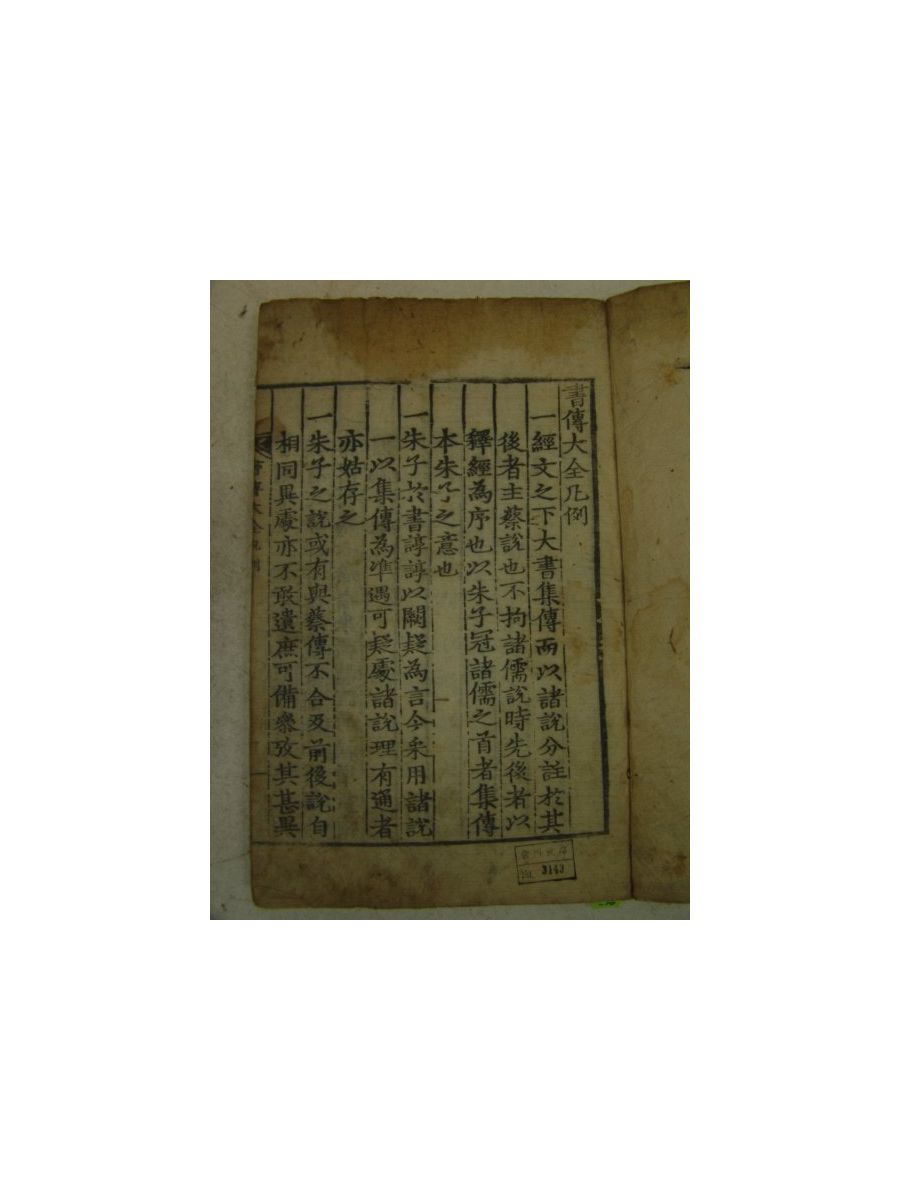 書傳大全凡例
一經文之下大書集傳而以諸說分註於其
後者主蔡說也不拘諸儒說時先後者以
釋經為序也以朱子冠諸儒之首者集傳
本朱子之意也
一朱子於書諄諄以闕疑為言今采用諸說
一以集傳為準遇可疑處諸說理有通者
亦姑存之
一朱子之說或有與蔡傳不合及前後說自
相同異處亦不敢遺庶可備叅攷其甚異
書傳大全凡例
3143